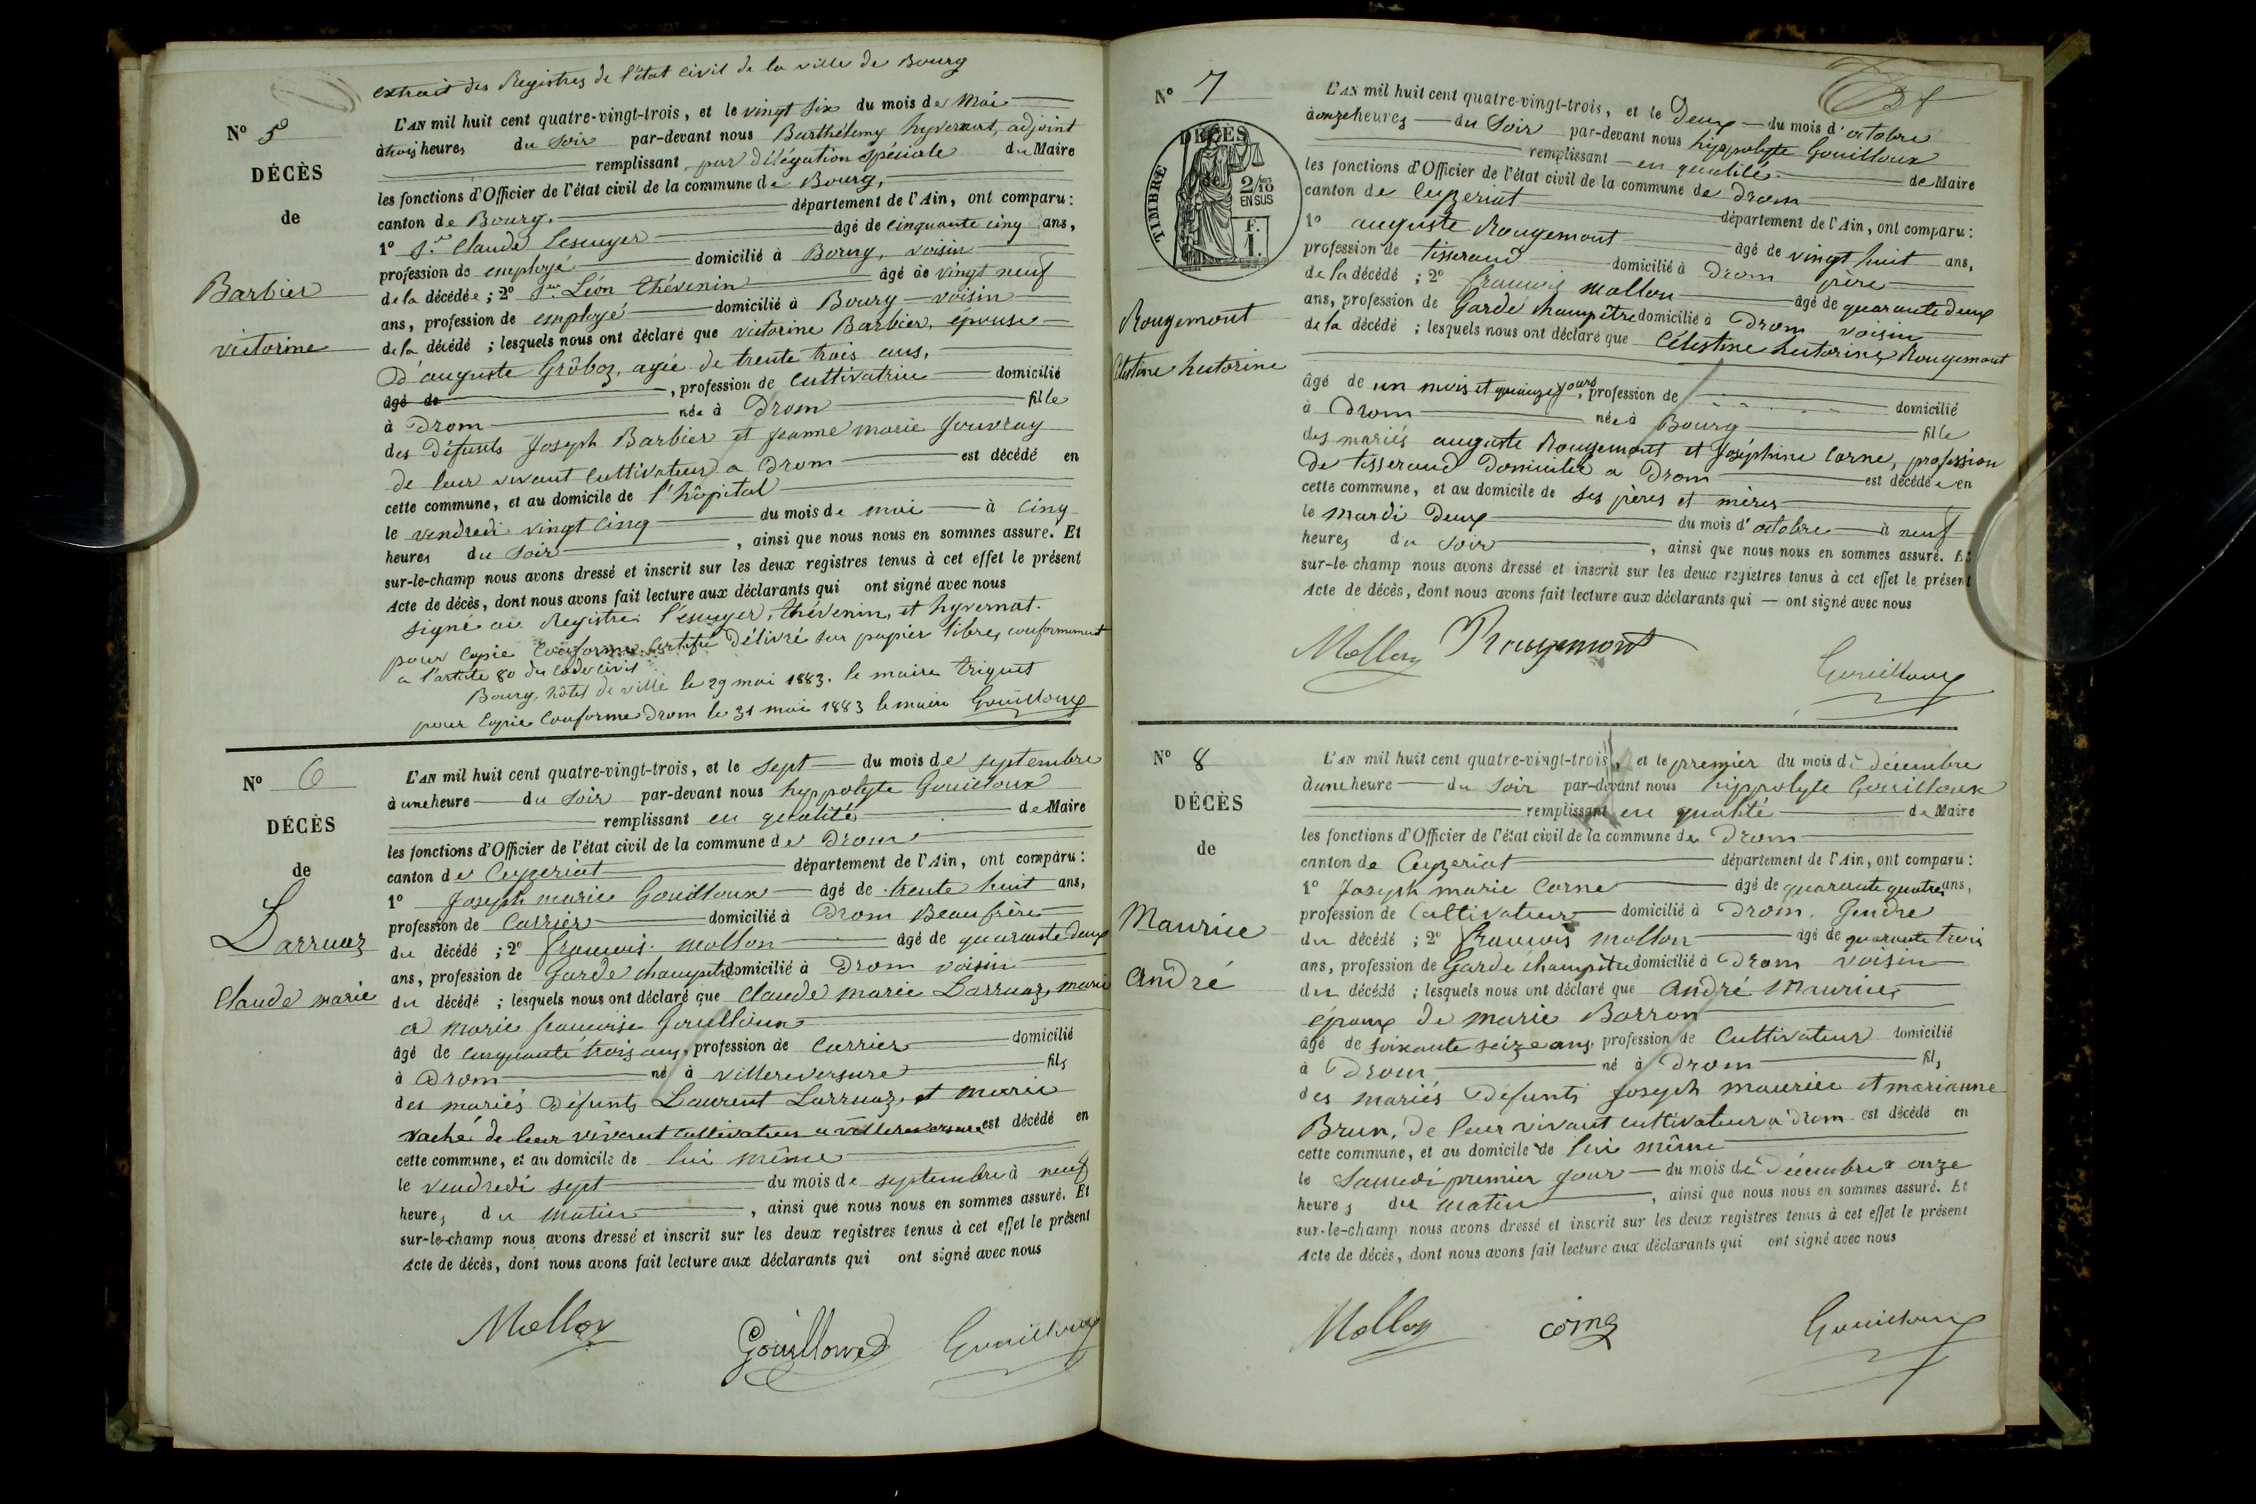 extrait des Registres de l'état civil de la ville de Bourg
N° 5
DÉCÈS
de
Barbier
victorine
L'AN mil huit cent quatre-vingt-trois, et le vingt six du mois de Mai
à trois heures du soir par-devant nous Barthélemy hyvernat, adjoint
remplissant par délégation spéciale du Maire
les fonctions d'Officier de l'état civil de la commune de Bourg,
canton de Bourg. département de l'Ain, ont comparu :
1° Sr. Claude Lescuyer âgé de cinquante cinq ans,
profession de employé domicilié à Bourg, voisin
de la décédée ; 2° Sieur Léon thévenin âgé de vingt neuf
ans, profession de employé domicilié à Bourg voisin
de la décédé ; lesquels nous ont déclaré que victorine Barbier, épouse
D'auguste Grôboz, agée de trente trois ans,
âgé de , profession de cultivatrice domicilié
à Drom née à Drom fille
des Défunts Joseph Barbier et jeanne marie Jouvray
de leur vivant cultivateur a Drom est décédé en
cette commune, et au domicile de l'hôpital
le vendredi vingt cinq du mois de mai à cinq
heures du soir , ainsi que nous nous en sommes assuré. Et
sur-le-champ nous avons dressé et inscrit sur les deux registres tenus à cet effet le présent
Acte de décès, dont nous avons fait lecture aux déclarants qui ont signé avec nous
signé au Registre l'escuyer, thévenin, et hyvernat.
pour copie Conforme certifié Délivré sur papier libre, conformément
a l'article 80 du code civil
Bourg, hôtel de ville le 29 mai 1883. le maire triquet
pour Copie Conforme Drom le 31 mai 1883 le maire Gouilloux
N° 6
DÉCÈS
de
Larruaz
Claude marie
L'AN mil huit cent quatre-vingt-trois, et le sept du mois de septembre
à une heure du soir par-devant nous hyppolyte Gouilloux
remplissant en qualité de Maire
les fonctions d'Officier de l'état civil de la commune de Drom
canton de Ceyzeriat département de l'Ain, ont comparu :
1° Joseph marie Gouilloux âgé de trente huit ans,
profession de Carrier domicilié à Drom Beaufrère
du décédé ; 2° françois mollon âgé de quarante deux
ans, profession de Garde champêtre domicilié à Drom voisin
du décédé ; lesquels nous ont déclaré que Claude marie Larruaz, marié
a marie francoise Gouilloux
âgé de cinquante trois ans, profession de Carrier domicilié
à Drom né à villereversure fils
des mariés Défunts Laurent Larruaz, et marie
vaché de leur vivant cultivateur a villereversure est décédé en
cette commune, et au domicile de lui même
le vendredi sept du mois de septembre à neuf
heures du matin , ainsi que nous nous en sommes assuré. Et
sur-le-champ nous avons dressé et inscrit sur les deux registres tenus à cet effet le présent
Acte de décès, dont nous avons fait lecture aux déclarants qui ont signé avec nous
Mollon Gouilloux Gouilloux
N° 7
DÉCÈS
de
TIMBRE
2/10
EN SUS
F.
1.
Rougemont
Célestine hutorine
L'AN mil huit cent quatre-vingt-trois, et le Deux du mois d'octobre
à onze heures du Soir par-devant nous hyppolyte Gouilloux
remplissant en qualité de Maire
les fonctions d'Officier de l'état civil de la commune de Drom
canton de Ceyzeriat département de l'Ain, ont comparu :
1° auguste Rougemont âgé de vingt huit ans,
profession de tisserand domicilié à Drom père
de la décédé ; 2° françois mollon âgé de quarante deux
ans, profession de Garde champêtre domicilié à Drom voisin
de la décédé ; lesquels nous ont déclaré que Célestine hutorine Rougemont
âgé de un mois et quinze jours, profession de domicilié
à Drom née à Bourg fille
des mariés auguste Rougemont et Joséphine Corne, profession
de tisserand Domicilié a Drom est décédée en
cette commune, et au domicile de ses pères et mères
le mardi Deux du mois d'octobre à neuf
heures du soir , ainsi que nous nous en sommes assuré. Et
sur-le-champ nous avons dressé et inscrit sur les deux registres tenus à cet effet le présent
Acte de décès, dont nous avons fait lecture aux déclarants qui ont signé avec nous
Mollon Rougemont Gouilloux
N° 8
DÉCÈS
de
Maurice
André
L'AN mil huit cent quatre-vingt-trois, et le premier du mois de décembre
à une heure du Soir par-devant nous hippolyte Gouilloux
remplissant en qualité de Maire
les fonctions d'Officier de l'état civil de la commune de Drom
canton de Ceyzeriat département de l'Ain, ont comparu :
1° Joseph marie Corne âgé de quarante quatre ans,
profession de Cultivateur domicilié à Drom, Gendre
du décédé ; 2° françois mollon âgé de quarante trois
ans, profession de Garde champêtre domicilié à Drom voisin
du décédé ; lesquels nous ont déclaré que André Maurice
époux de marie Barron
âgé de soixante seize ans, profession de Cultivateur domicilié
à Drom né à Drom fils
des mariés Défunts Joseph maurice et marianne
Brun, de leur vivant cultivateur a drom est décédé en
cette commune, et au domicile de lui même
le Samedi premier jour du mois de Décembre à onze
heures du matin , ainsi que nous nous en sommes assuré. Et
sur-le-champ nous avons dressé et inscrit sur les deux registres tenus à cet effet le présent
Acte de décès, dont nous avons fait lecture aux déclarants qui ont signé avec nous
Mollon corne Gouilloux